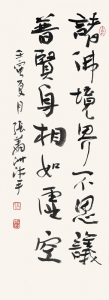 諸佛境界不思議
普賢身相如虛空
壬寅夏月張蕭洲沐手